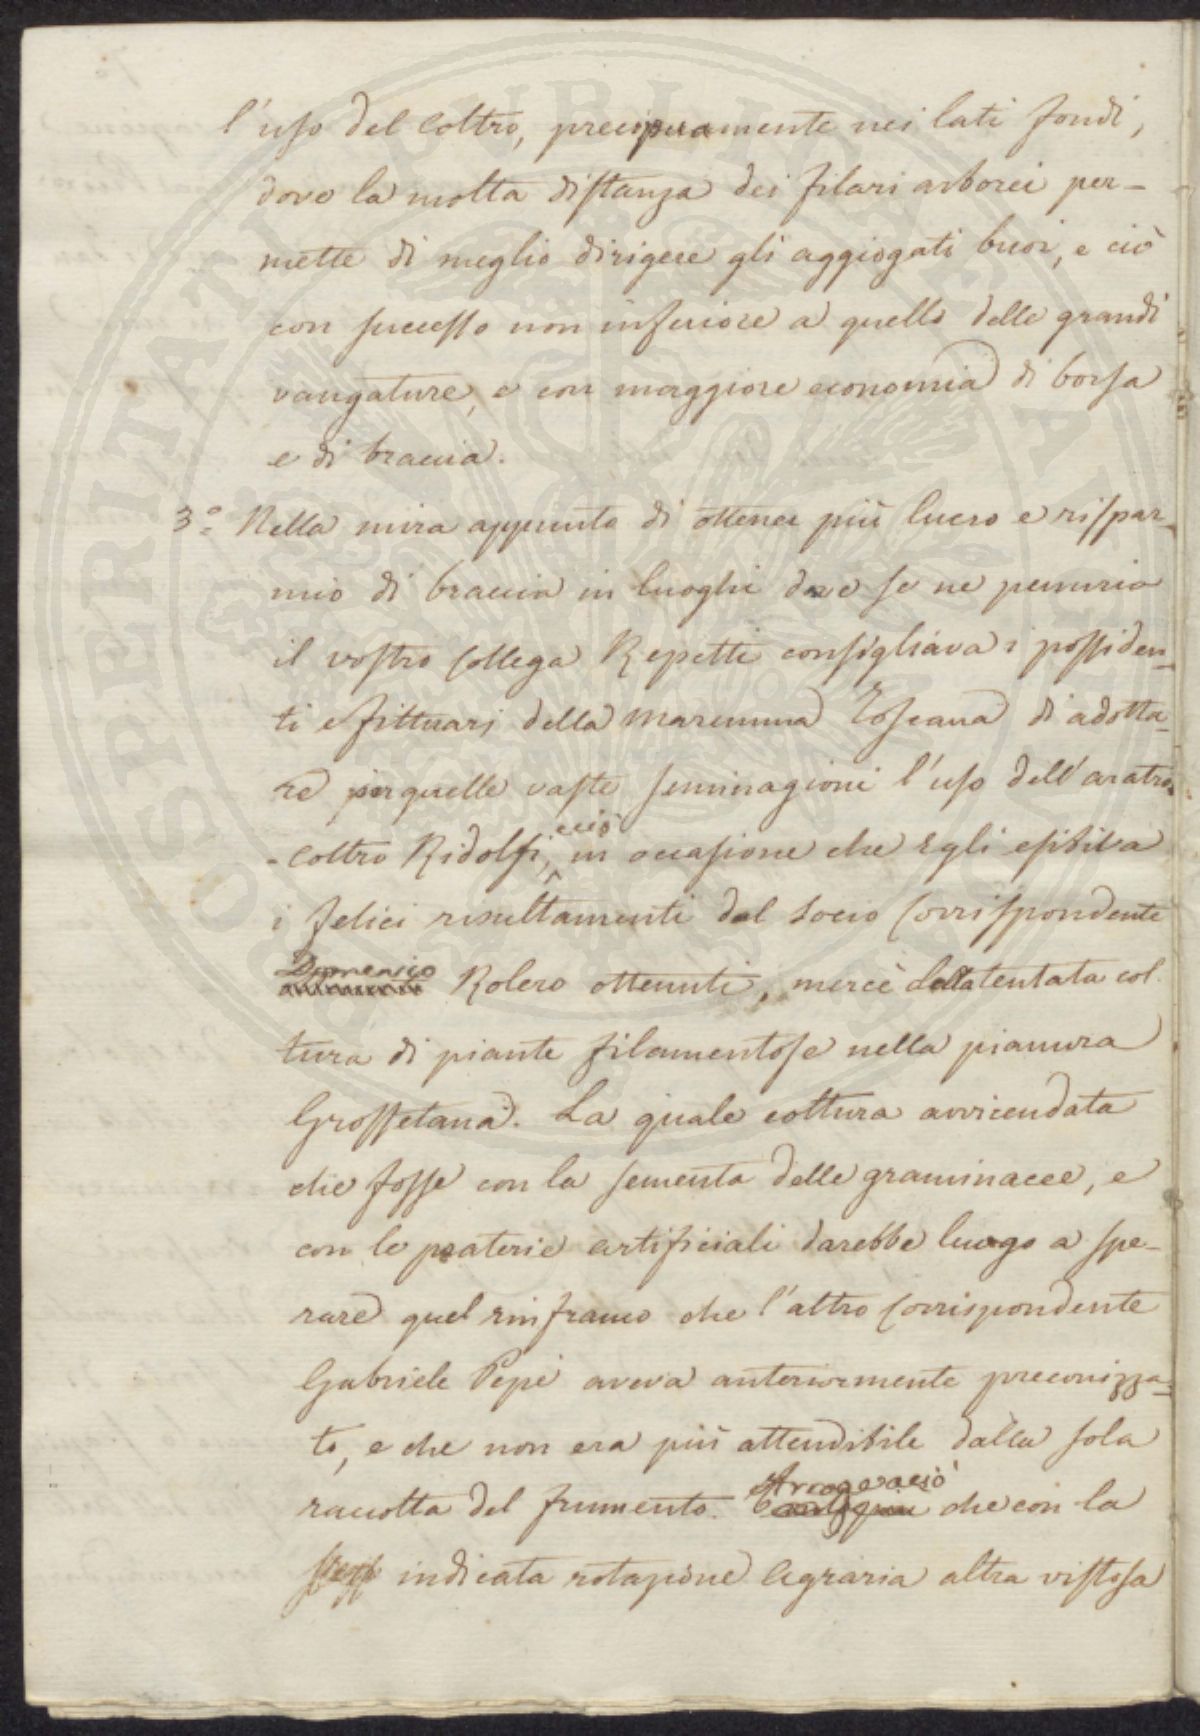 l'uso del coltro, precipuamente nei lati fondi,
dove la molta distanza dei filari arborei per-
mette di meglio dirigere gli aggiogati buoi, e ciò
con successo non inferiore a quello delle grandi
vangature, e con maggiore economia di borsa
e di braccia.
3º Nella mira appunto di ottener più lucro e rispar-
mio di braccia in luoghi dove se ne penuria
il vostro Collega Repetti consigliava i possiden-
ti e fittuarj della Maremma Toscana di adotta-
re per quelle vaste seminagioni l'uso dell'aratro
-coltro Ridolfi, ecciò in occasione che Egli esibiva
i felici resultamenti dal Socio Corrispondente
Domenico Rolero ottenuti, mercè della tentata col-
tura di piante filamentose nella pianura
Grossetana. La quale coltura avvicendata
che fosse con la sementa delle graminacee, e
con le praterie artificiali darebbe luogo a spe-
rare quel rinfranco che l'altro Corrispondente
Gabriele Pepe aveva anteriormente preconizza-
to, e che non era più attendibile dalla sola
raccolta del frumento. Arroge a ciò che con la
indicata rotazione Agraria altra vistosa
SOSPERITATI PUBLICAE AUGENDAE